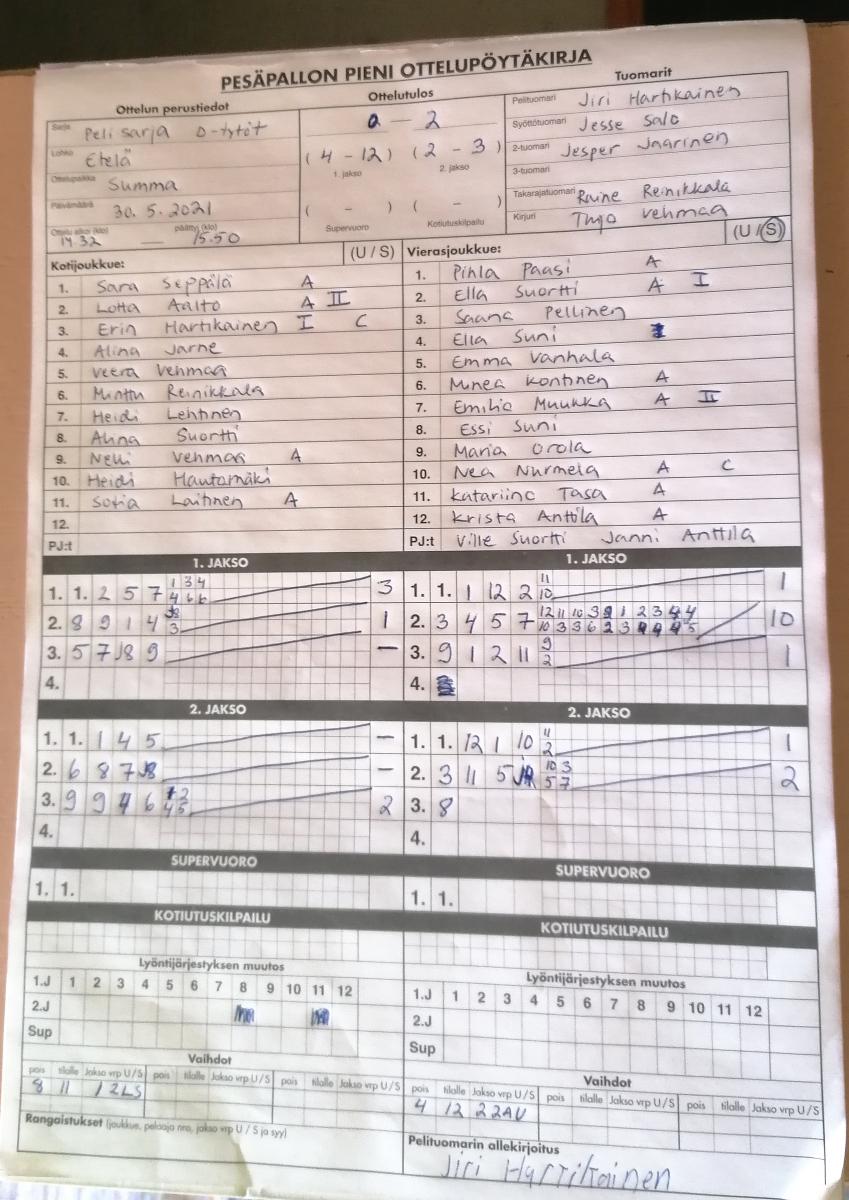 PESÄPALLON PIENI OTTELUPÖYTÄKIRJA
Ottelun perustiedot
Sarja Peli sarja D-tytöt
Lohko Etelä
Ottelupaikka Summa
Päivämäärä 30. 5. 2021
Ottelu alkoi (klo) 14.32 — päättyi (klo) 15.50
Ottelutulos
0 — 2
(4 - 12) (2 - 3)
1. jakso 2. jakso
( - ) ( - )
Supervuoro Kotiutuskilpailu
Tuomarit
Pelituomari Jiri Hartikainen
Syöttötuomari Jesse Salo
2-tuomari Jesper Jaarinen
3-tuomari
Takarajatuomari Raine Reinikkala
Kirjuri Tuija Vehmaa
Kotijoukkue: (U / S)
1. Sara Seppälä A
2. Lotta Aalto A II
3. Erin Hartikainen I C
4. Alina Jarne
5. Veera Vehmaa
6. Minttu Reinikkala
7. Heidi Lehtinen
8. Alina Suortti
9. Nelli Vehmaa A
10. Heidi Hautamäki
11. Sofia Laitinen A
12.
PJ:t
Vierasjoukkue: (U / S)
1. Pihla Paasi A
2. Ella Suortti A I
3. Saana Pellinen
4. Ella Suni
5. Emma Vanhala
6. Minea Kontinen A
7. Emilia Muukka A II
8. Essi Suni
9. Maria Orola
10. Nea Nurmela A C
11. Katariina Tasa A
12. Krista Anttila A
PJ:t Ville Suortti Janni Anttila
1. JAKSO
1. 1. 2 5 7 1 3 4 3
4 6 6
2. 8 9 1 4 3 1
3. 5 7 8 9 —
4.
1. JAKSO
1. 1. 1 12 2 11 1
10
2. 3 4 5 7 12 11 10 3 9 1 2 3 4 4 10
10 3 3 6 2 3 4 4 4 5
3. 9 1 2 11 9 1
2
4.
2. JAKSO
1. 1. 1 4 5 —
2. 6 8 7 —
3. 9 9 4 6 2 2
4 5
4.
2. JAKSO
1. 1. 12 1 10 11 1
2
2. 3 11 5 10 3 2
5 7
3. 8
4.
SUPERVUORO
1. 1.
SUPERVUORO
1. 1.
KOTIUTUSKILPAILU
KOTIUTUSKILPAILU
Lyöntijärjestyksen muutos
1.J 1 2 3 4 5 6 7 8 9 10 11 12
2.J
Sup
Lyöntijärjestyksen muutos
1.J 1 2 3 4 5 6 7 8 9 10 11 12
2.J
Sup
Vaihdot
pois tilalle Jakso vrp U/S pois tilalle Jakso vrp U/S pois tilalle Jakso vrp U/S
8 11 1 2LS
Vaihdot
pois tilalle Jakso vrp U/S pois tilalle Jakso vrp U/S pois tilalle Jakso vrp U/S
4 12 2 2AU
Rangaistukset (joukkue, pelaaja nro, jakso vrp U / S ja syy)
Pelituomarin allekirjoitus
Jiri Hartikainen